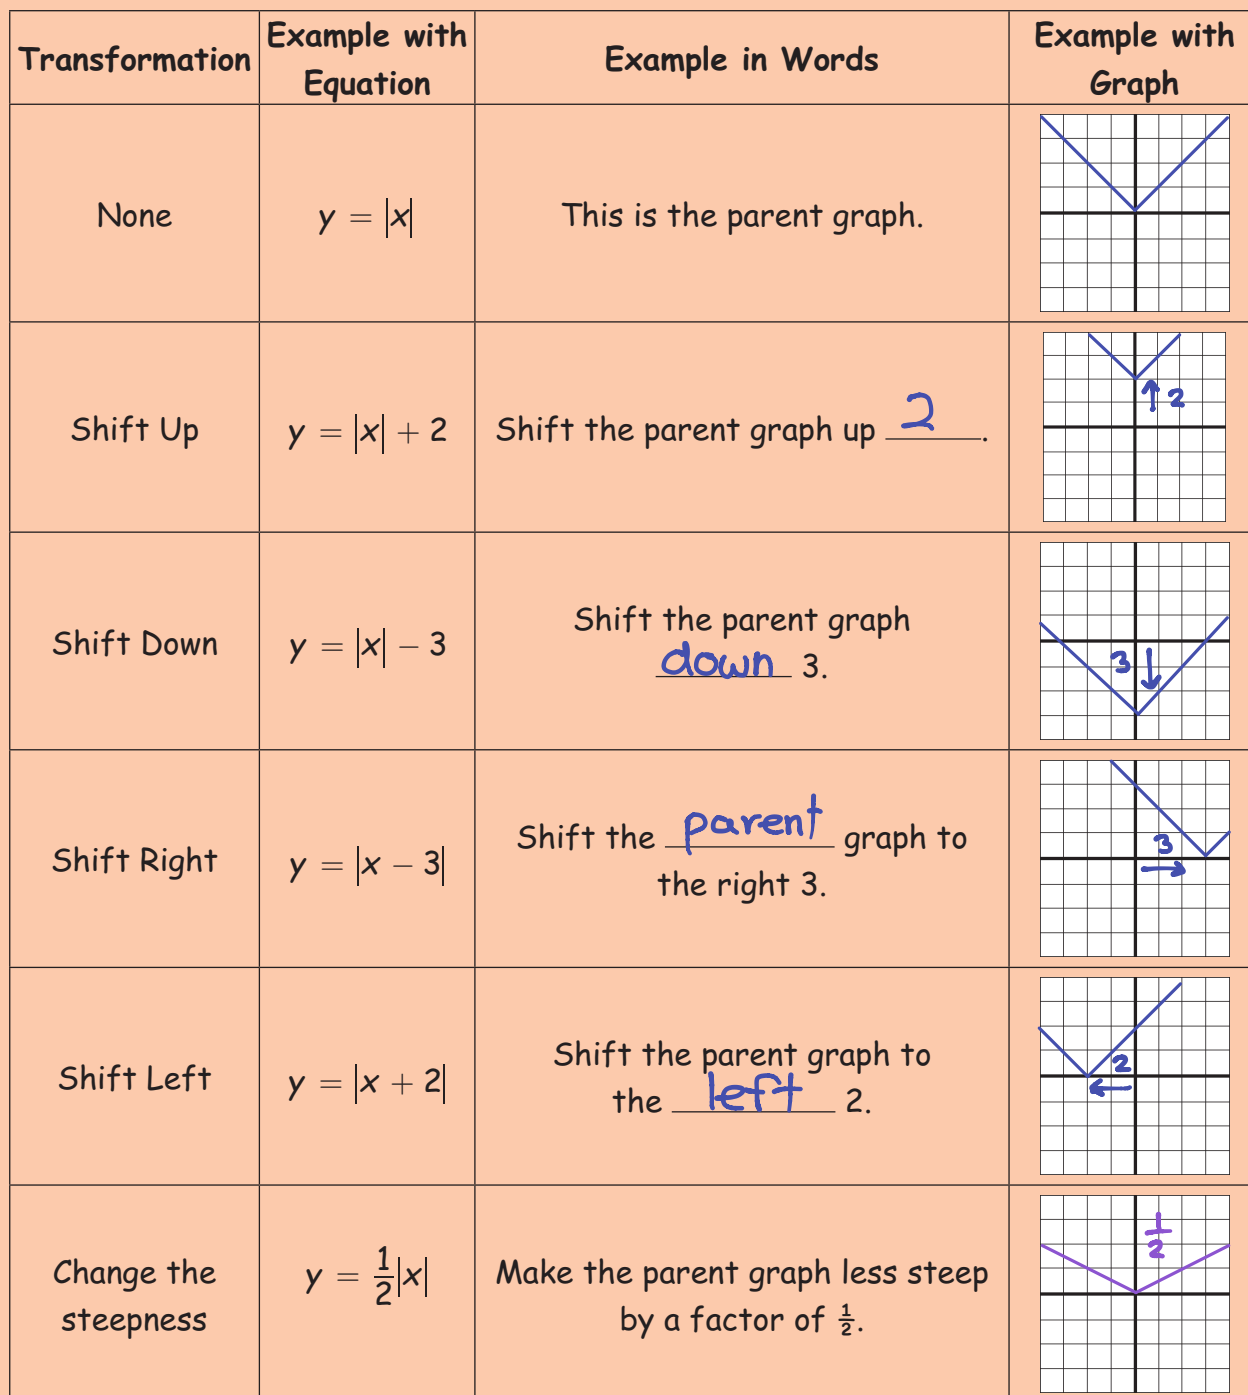 Transformation
Example with
Equation
Example in Words
Example with
Graph
None
y = |x|
This is the parent graph.
Shift Up
y = |x| + 2
Shift the parent graph up 2.
↑ 2
Shift Down
y = |x| − 3
Shift the parent graph
down 3.
3 ↓
Shift Right
y = |x − 3|
Shift the parent graph to
the right 3.
3
→
Shift Left
y = |x + 2|
Shift the parent graph to
the left 2.
2
←
Change the
steepness
y = 1/2|x|
Make the parent graph less steep
by a factor of 1/2.
1/2